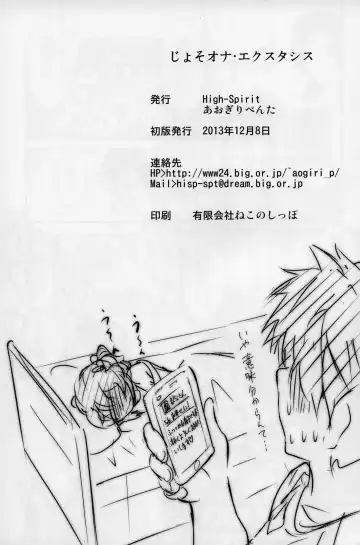 じょそオナ・エクスタシス
発行 High-Spirit
あおぎりぺんた
初版発行 2013年12月8日
連絡先
HP>http://www24.big.or.jp/~aogiri_p/
Mail>hisp-spt@dream.big.or.jp
印刷 有限会社ねこのしっぽ
いや意味分からんて…
う〜ん
う〜ん